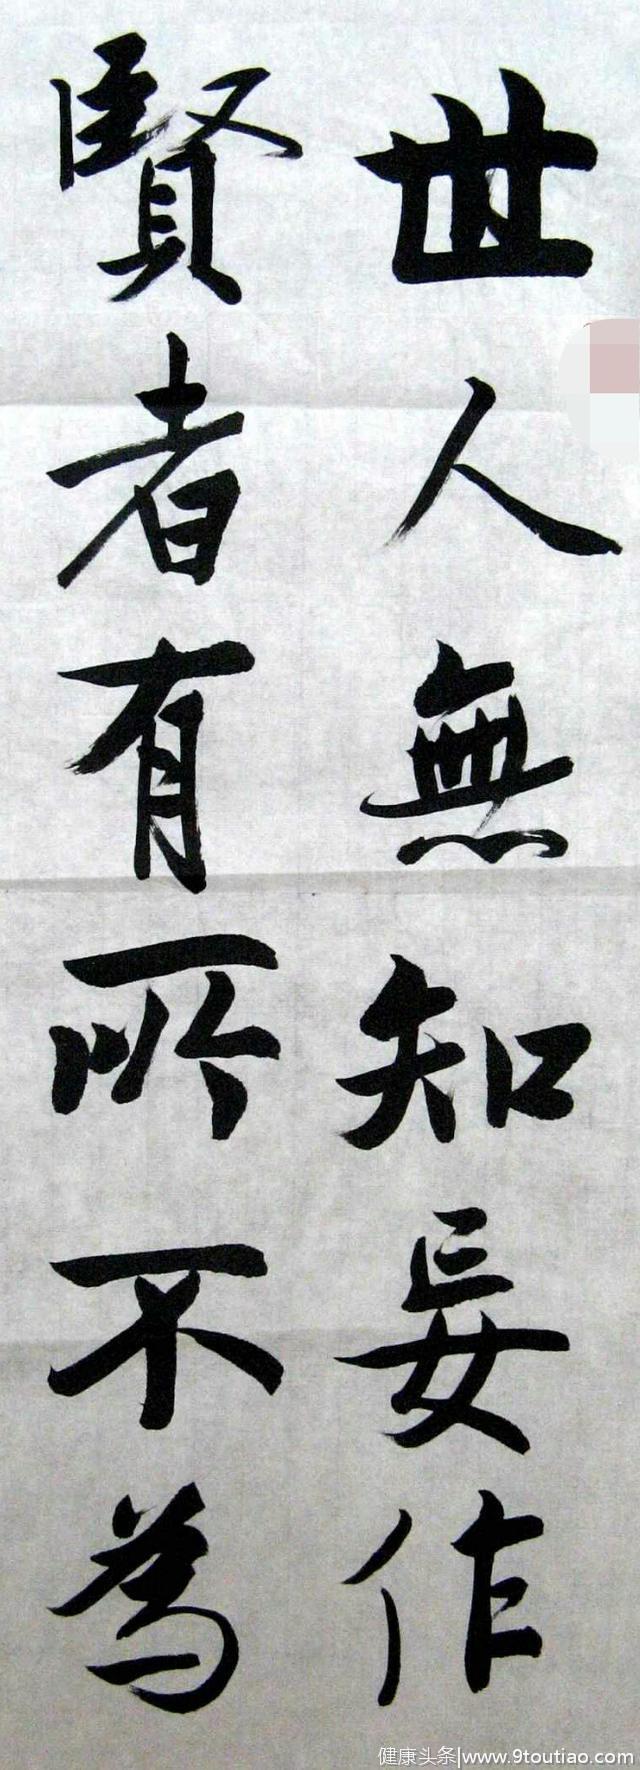 世人無知妄作
賢者有所不為
健康头条|www.9toutiao.com